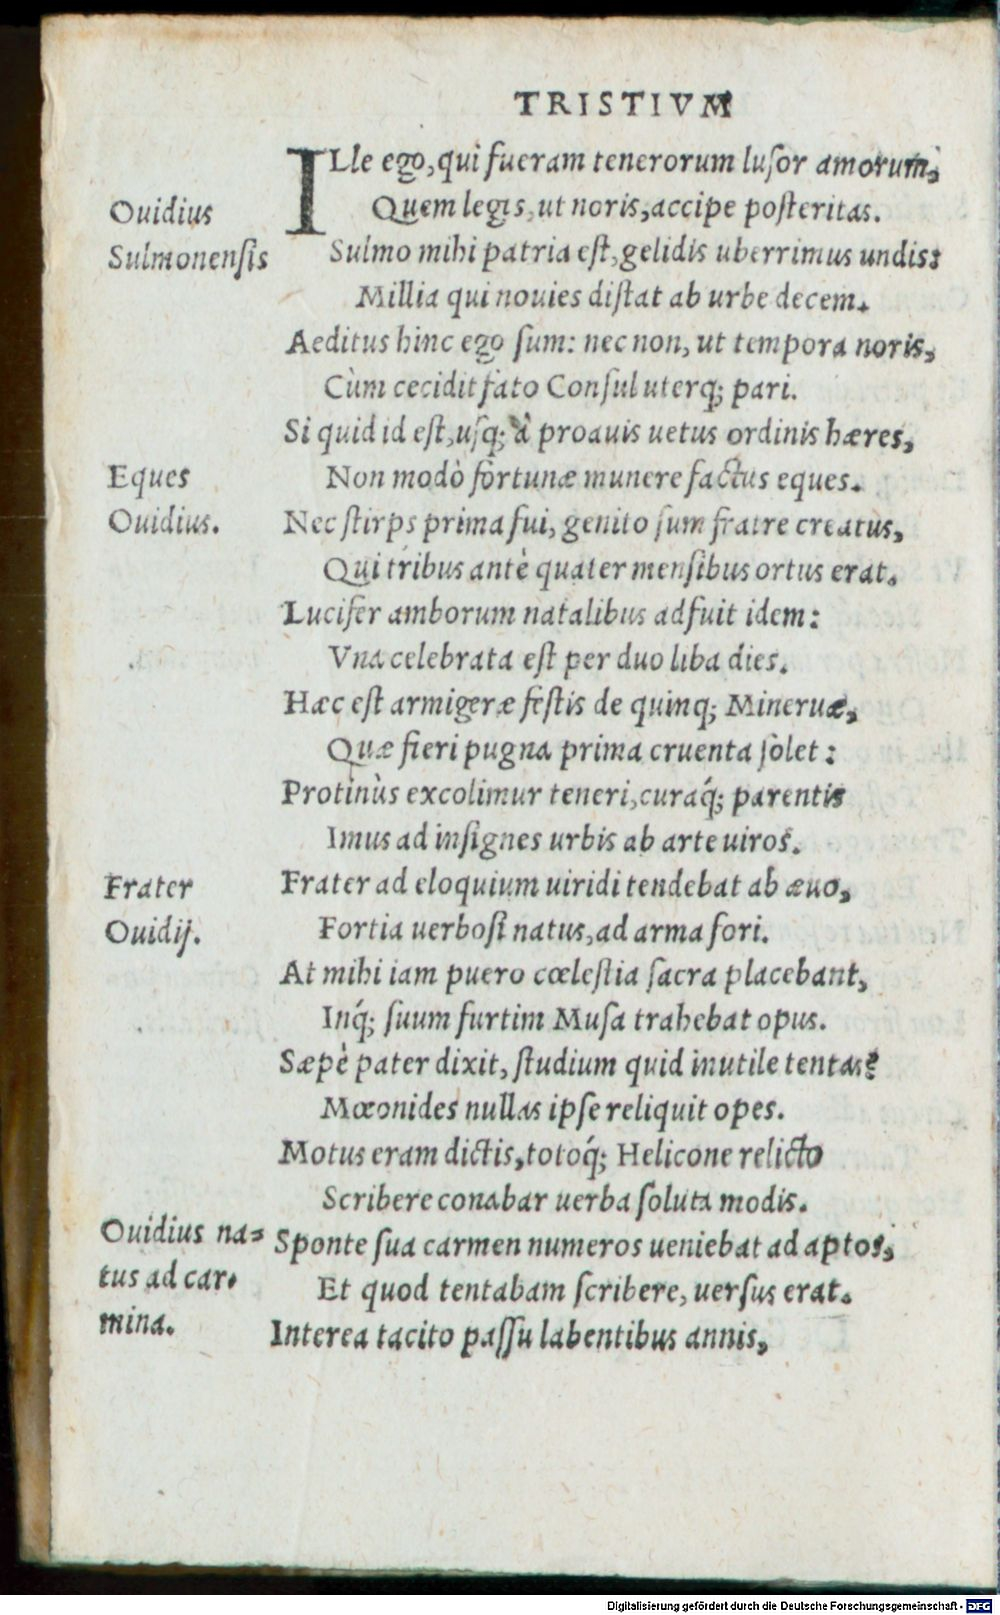 TRISTIVM
ILle ego, qui fueram tenerorum luſor amorum,
Quem legis, ut noris, accipe poſteritas.
Ouidius
Sulmonenſis
Sulmo mihi patria eſt, gelidis uberrimus undis:
Millia qui nouies diſtat ab urbe decem.
Aeditus hinc ego ſum: nec non, ut tempora noris,
Cùm cecidit fato Conſul uterq; pari.
Si quid id eſt, uſq; à proauis uetus ordinis hæres,
Eques
Ouidius.
Non modò fortunæ munere factus eques.
Nec ſtirps prima fui, genito ſum fratre creatus,
Qui tribus antè quater menſibus ortus erat.
Lucifer amborum natalibus adfuit idem:
Vna celebrata eſt per duo liba dies.
Hæc eſt armigeræ feſtis de quinq; Mineruæ,
Quæ fieri pugna prima cruenta ſolet:
Protinùs excolimur teneri, curaq́; parentis
Imus ad inſignes urbis ab arte uiros.
Frater
Ouidij.
Frater ad eloquium uiridi tendebat ab æuo,
Fortia uerboſi natus, ad arma fori.
At mihi iam puero cœleſtia ſacra placebant,
Inq́; ſuum furtim Muſa trahebat opus.
Sæpè pater dixit, ſtudium quid inutile tentas?
Mœonides nullas ipſe reliquit opes.
Motus eram dictis, totoq́; Helicone relicto
Scribere conabar uerba ſoluta modis.
Ouidius na=
tus ad car.
mina.
Sponte ſua carmen numeros ueniebat ad aptos,
Et quod tentabam ſcribere, uerſus erat.
Interea tacito paſſu labentibus annis,
Digitalisierung gefördert durch die Deutsche Forschungsgemeinschaft - DFG